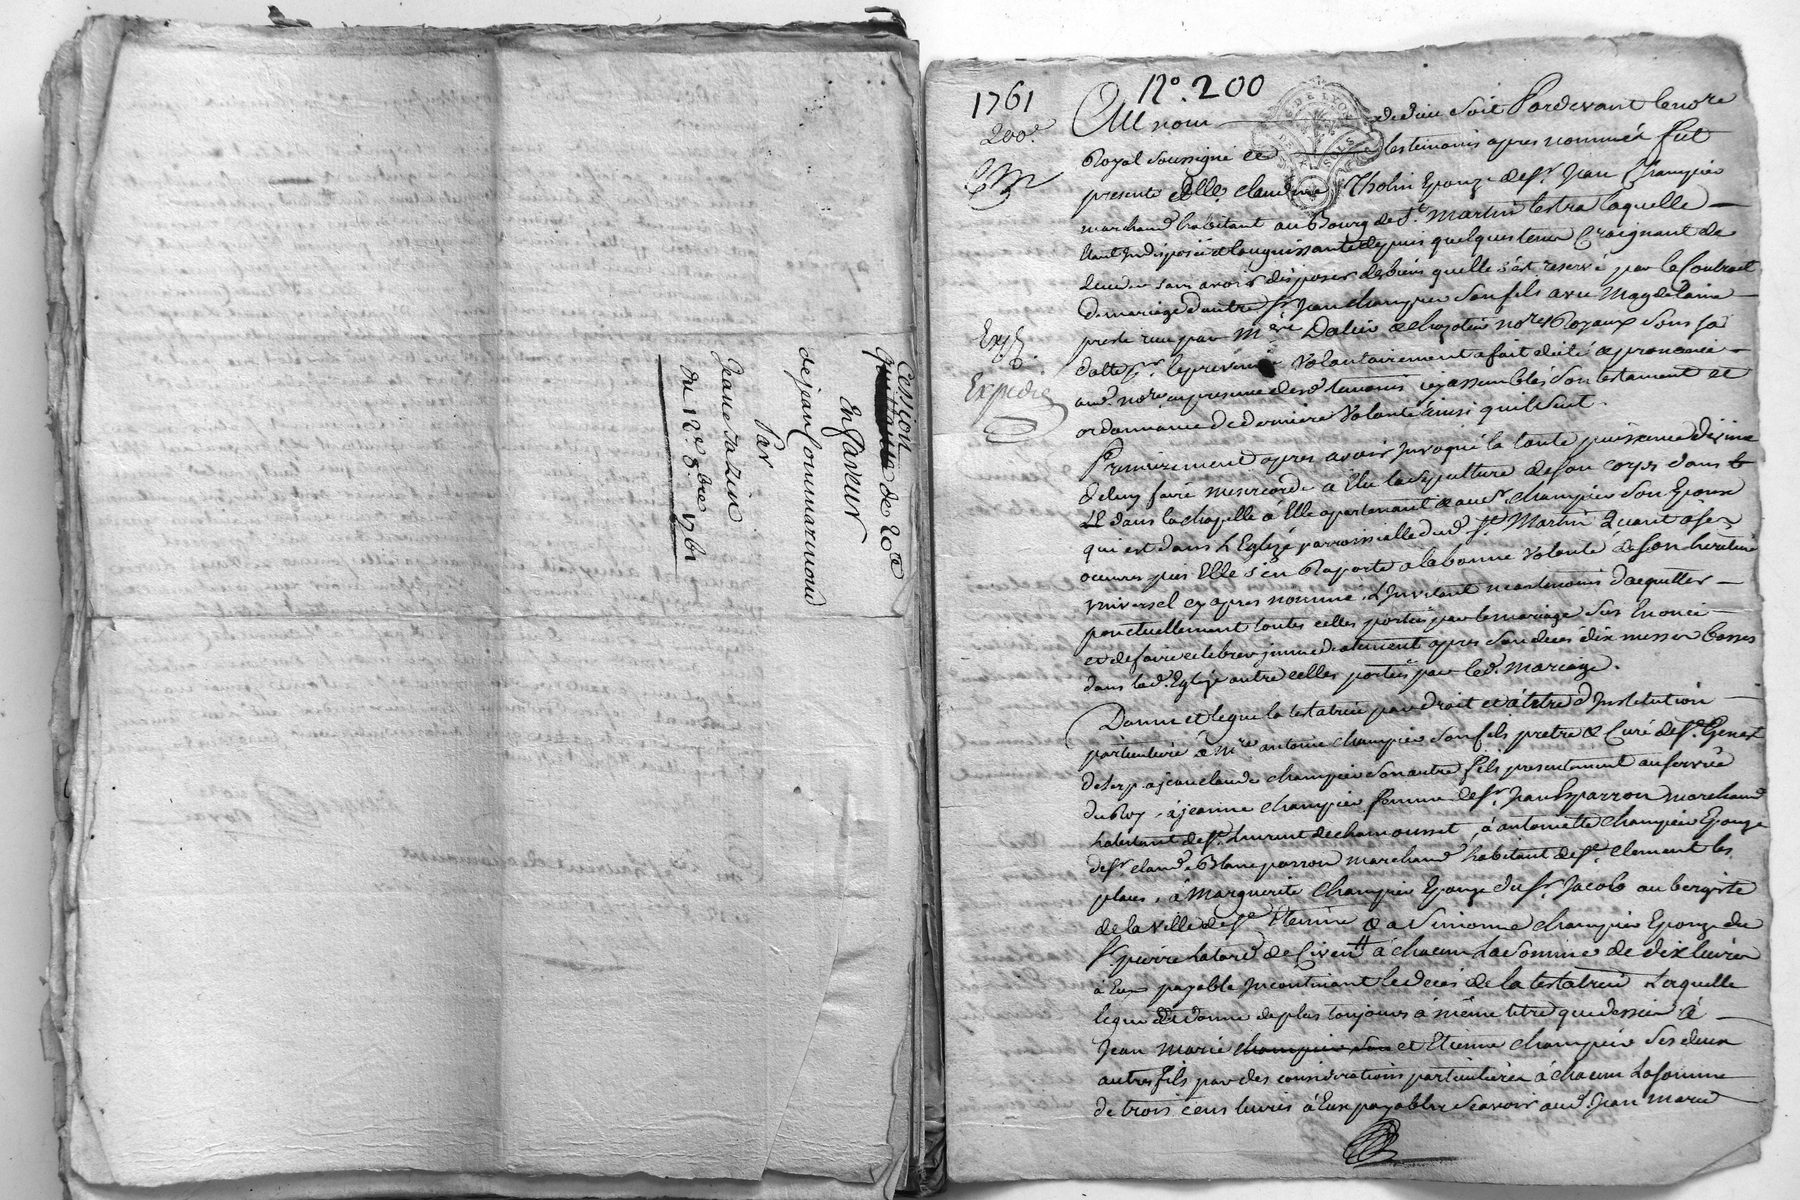 Cession
quittance de 20tt
En faveur
de jean Commarmond
Par
Jeane
du 12e. 8bre 1761
1761
200e
N°. 200
Au nom de dieu soit Pardevant le nore
Royal soussigné et les temoins apres nommés fut
presente dlle. claudine Tholin Epouze de sr. Jean Champier
marchand habitant au Bourg de St. Martin lestra laquelle
étant Indisposée et languissante depuis quelques tems Craignant de
sans avoir disposer des biens quelle s'est reservé par le Contract
de mariage d'entre sr. Jean champier son fils avec Magdelaine
reçu par Mtre Dalier et chazotier nores Royaux sous sa
datte Volontairement a fait dicté et prononcé
aud. nore en presence desd. temoins icy assemblés son testament et
ordonnance de derniere Volonté ainsi quil suit.
Expé
Expedié
Premierement apres avoir Invoqué la toute puissance divine
de luy faire misericorde a Elu la sepulture de son corps dans
dans la chapelle a Elle apartenant et aud sr. champier son Epoux
qui est dans l'Eglize parroissielle dud. St. Martin Quant a ses
oeuvres pies Elle s'en Raporte a la bonne Volonté de son heritier
universel cy apres nommé, L'Invitant neantmoins d'acquitter
ponctuellement toutes celles portées par le mariage sus Enoncé
et de faire celebrer immediatement apres son deces dix messes basses
dans lad. Eglize outre celles portées par led. mariage.
Donne et legue la testatrice par droit et à titre d'Institution
particuliere à mre antoine champier son fils pretre et Curé de St. Genest
a jean claude champier son autre fils presentement au service
du Roy, à jeanne champier femme de sr. Jean Esparron marchand
habitant de St. Laurent de chamousset, à antoinette champier Epouze
de sr. claude Blanc passon marchand habitant de St. Clement les
places, à Marguerite Champier Epouze du sr. Jacob aubergiste
de la ville de St. Etienne & a Simonne champier Epouze du
sr. pierre de Civen à chacun la somme de dix livres
à Eux payable Incontinant le deces de la testatrice Laquelle
legue et donne de plus toujours à même titre que dessus à
Jean Marie champier son et Etienne champier ses deux
autres fils par des considerations particulieres à chacun La somme
de trois cens livres à Eux payables scavoir aud. Jean Marie